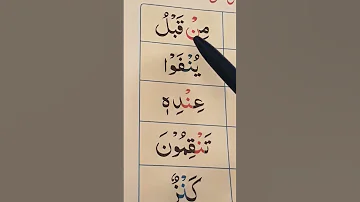 مِنْ قَبْلُ
يُنْفَوْا
عِنْدِهٖ
تَنْقِمُوْنَ
كَنْزٌ